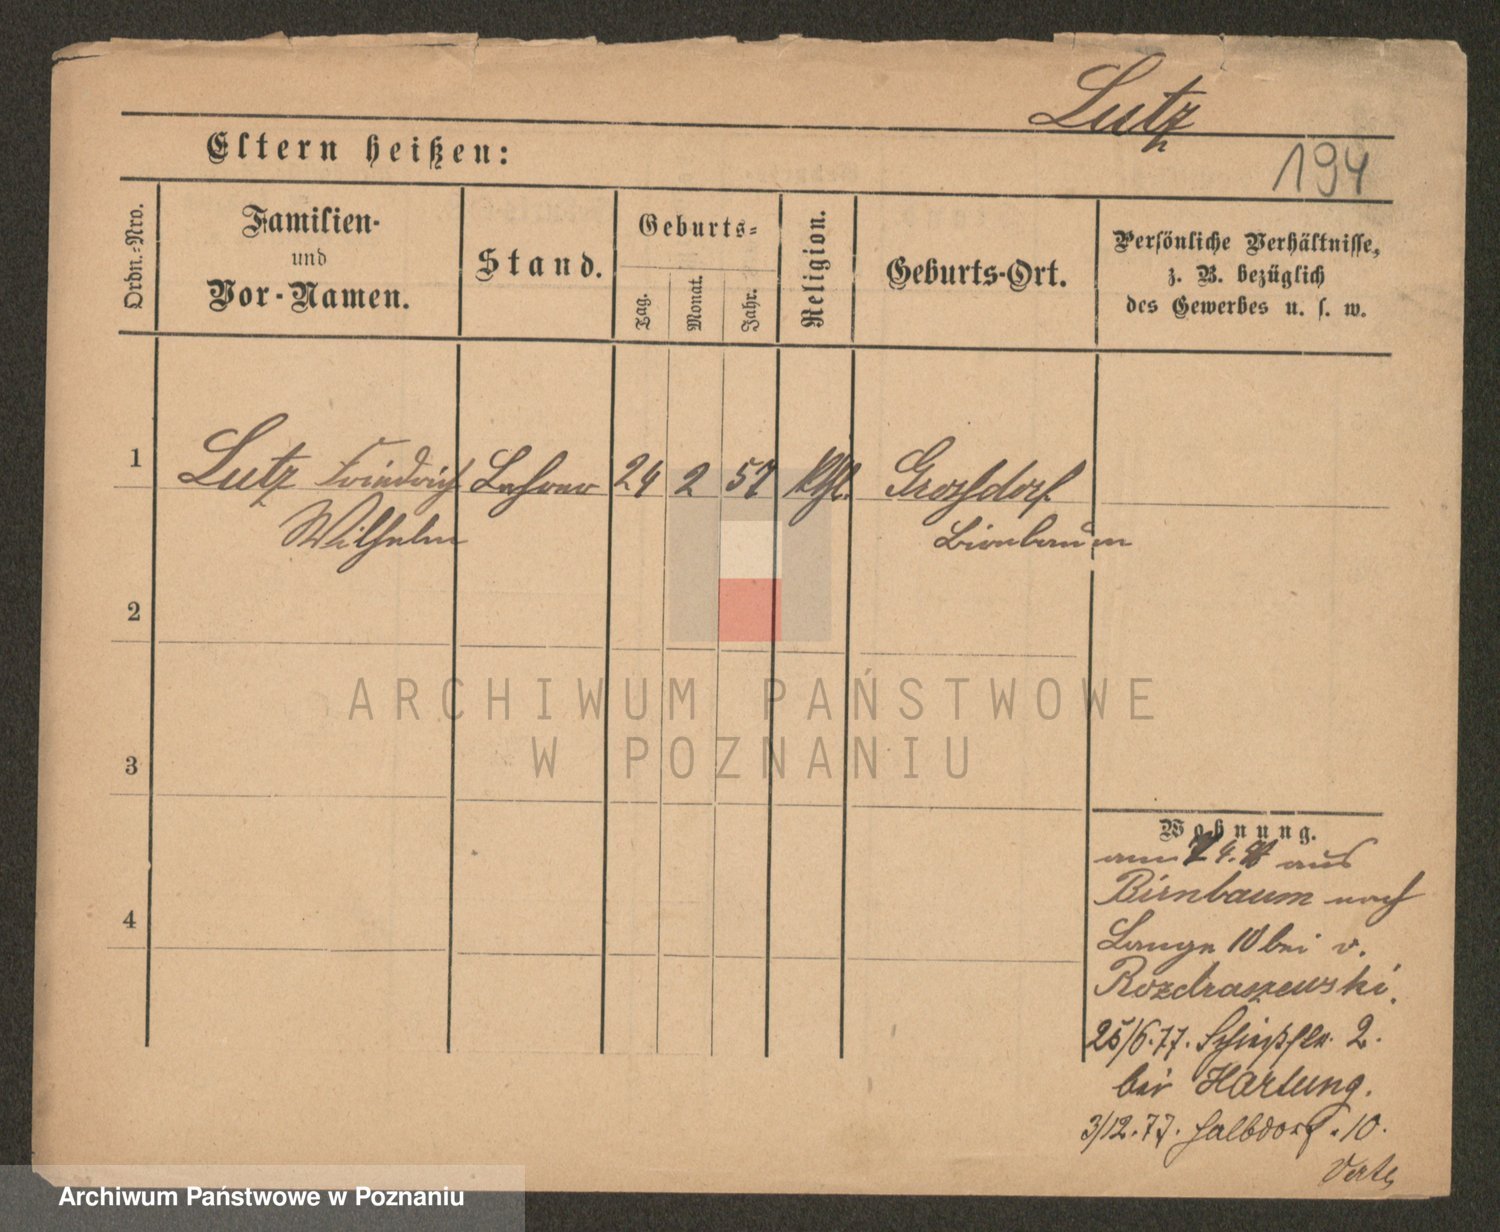 Lutz
194
Eltern heißen:
Ordn.-Nro.
Familien-
und
Vor-Namen.
Stand.
Geburts-
Tag.
Monat.
Jahr.
Religion.
Geburts-Ort.
Persönliche Verhältnisse,
z. B. bezüglich
des Gewerbes u. s. w.
1
Lutz Friedrich Lehrer 24 2 57 Großdorf
Wilhelm Birnbaum
2
ARCHIWUM PAŃSTWOWE
W POZNANIU
3
Wohnung.
am 4. aus
Birnbaum nach
4
Lange 10 bei v.
Rozdraszewski.
25/6.77. Schießstr. 2.
bei Hartung.
3/12.77. Halbdorf. 10.
Verte
Archiwum Państwowe w Poznaniu